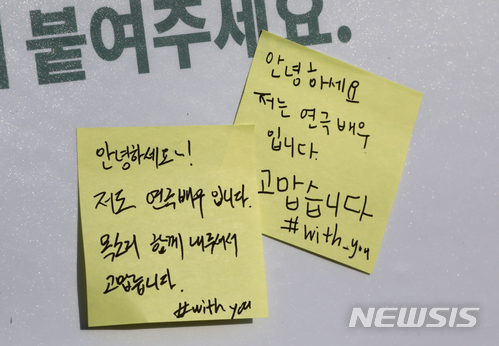 붙여주세요.
안녕하세요~!
저도 연극배우 입니다.
목소리 함께 내주셔서
고맙습니다.
#with you
안녕하세요
저는 연극배우
입니다.
고맙습니다
#with_you
NEWSIS